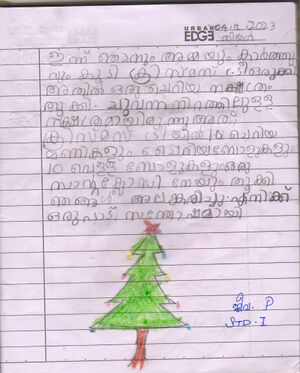 URBAN
EDGE
തിങ്കൾ
ഇന്ന് ഞാനും അമ്മയും
വും കൂടി ക്രിസ്മസ് ട്രീ ഒരുക്കി
അതിൽ ഒരു ചെറിയ നക്ഷത്രം
തൂക്കി. ചുവന്ന നിറത്തിലുള്ള
നക്ഷത്രമായിരുന്നു അത്.
ക്രിസ്മസ് ട്രീയിൽ ചെറിയ
മണികളും ചെറിയബോളുകളും
10 വെള്ള ബോളുകളും ഒരു
തൂക്കി
ഞങ്ങൾ അലങ്കരിച്ചു. എനിക്ക്
ഒരുപാട് സന്തോഷമായി
P
STD. I